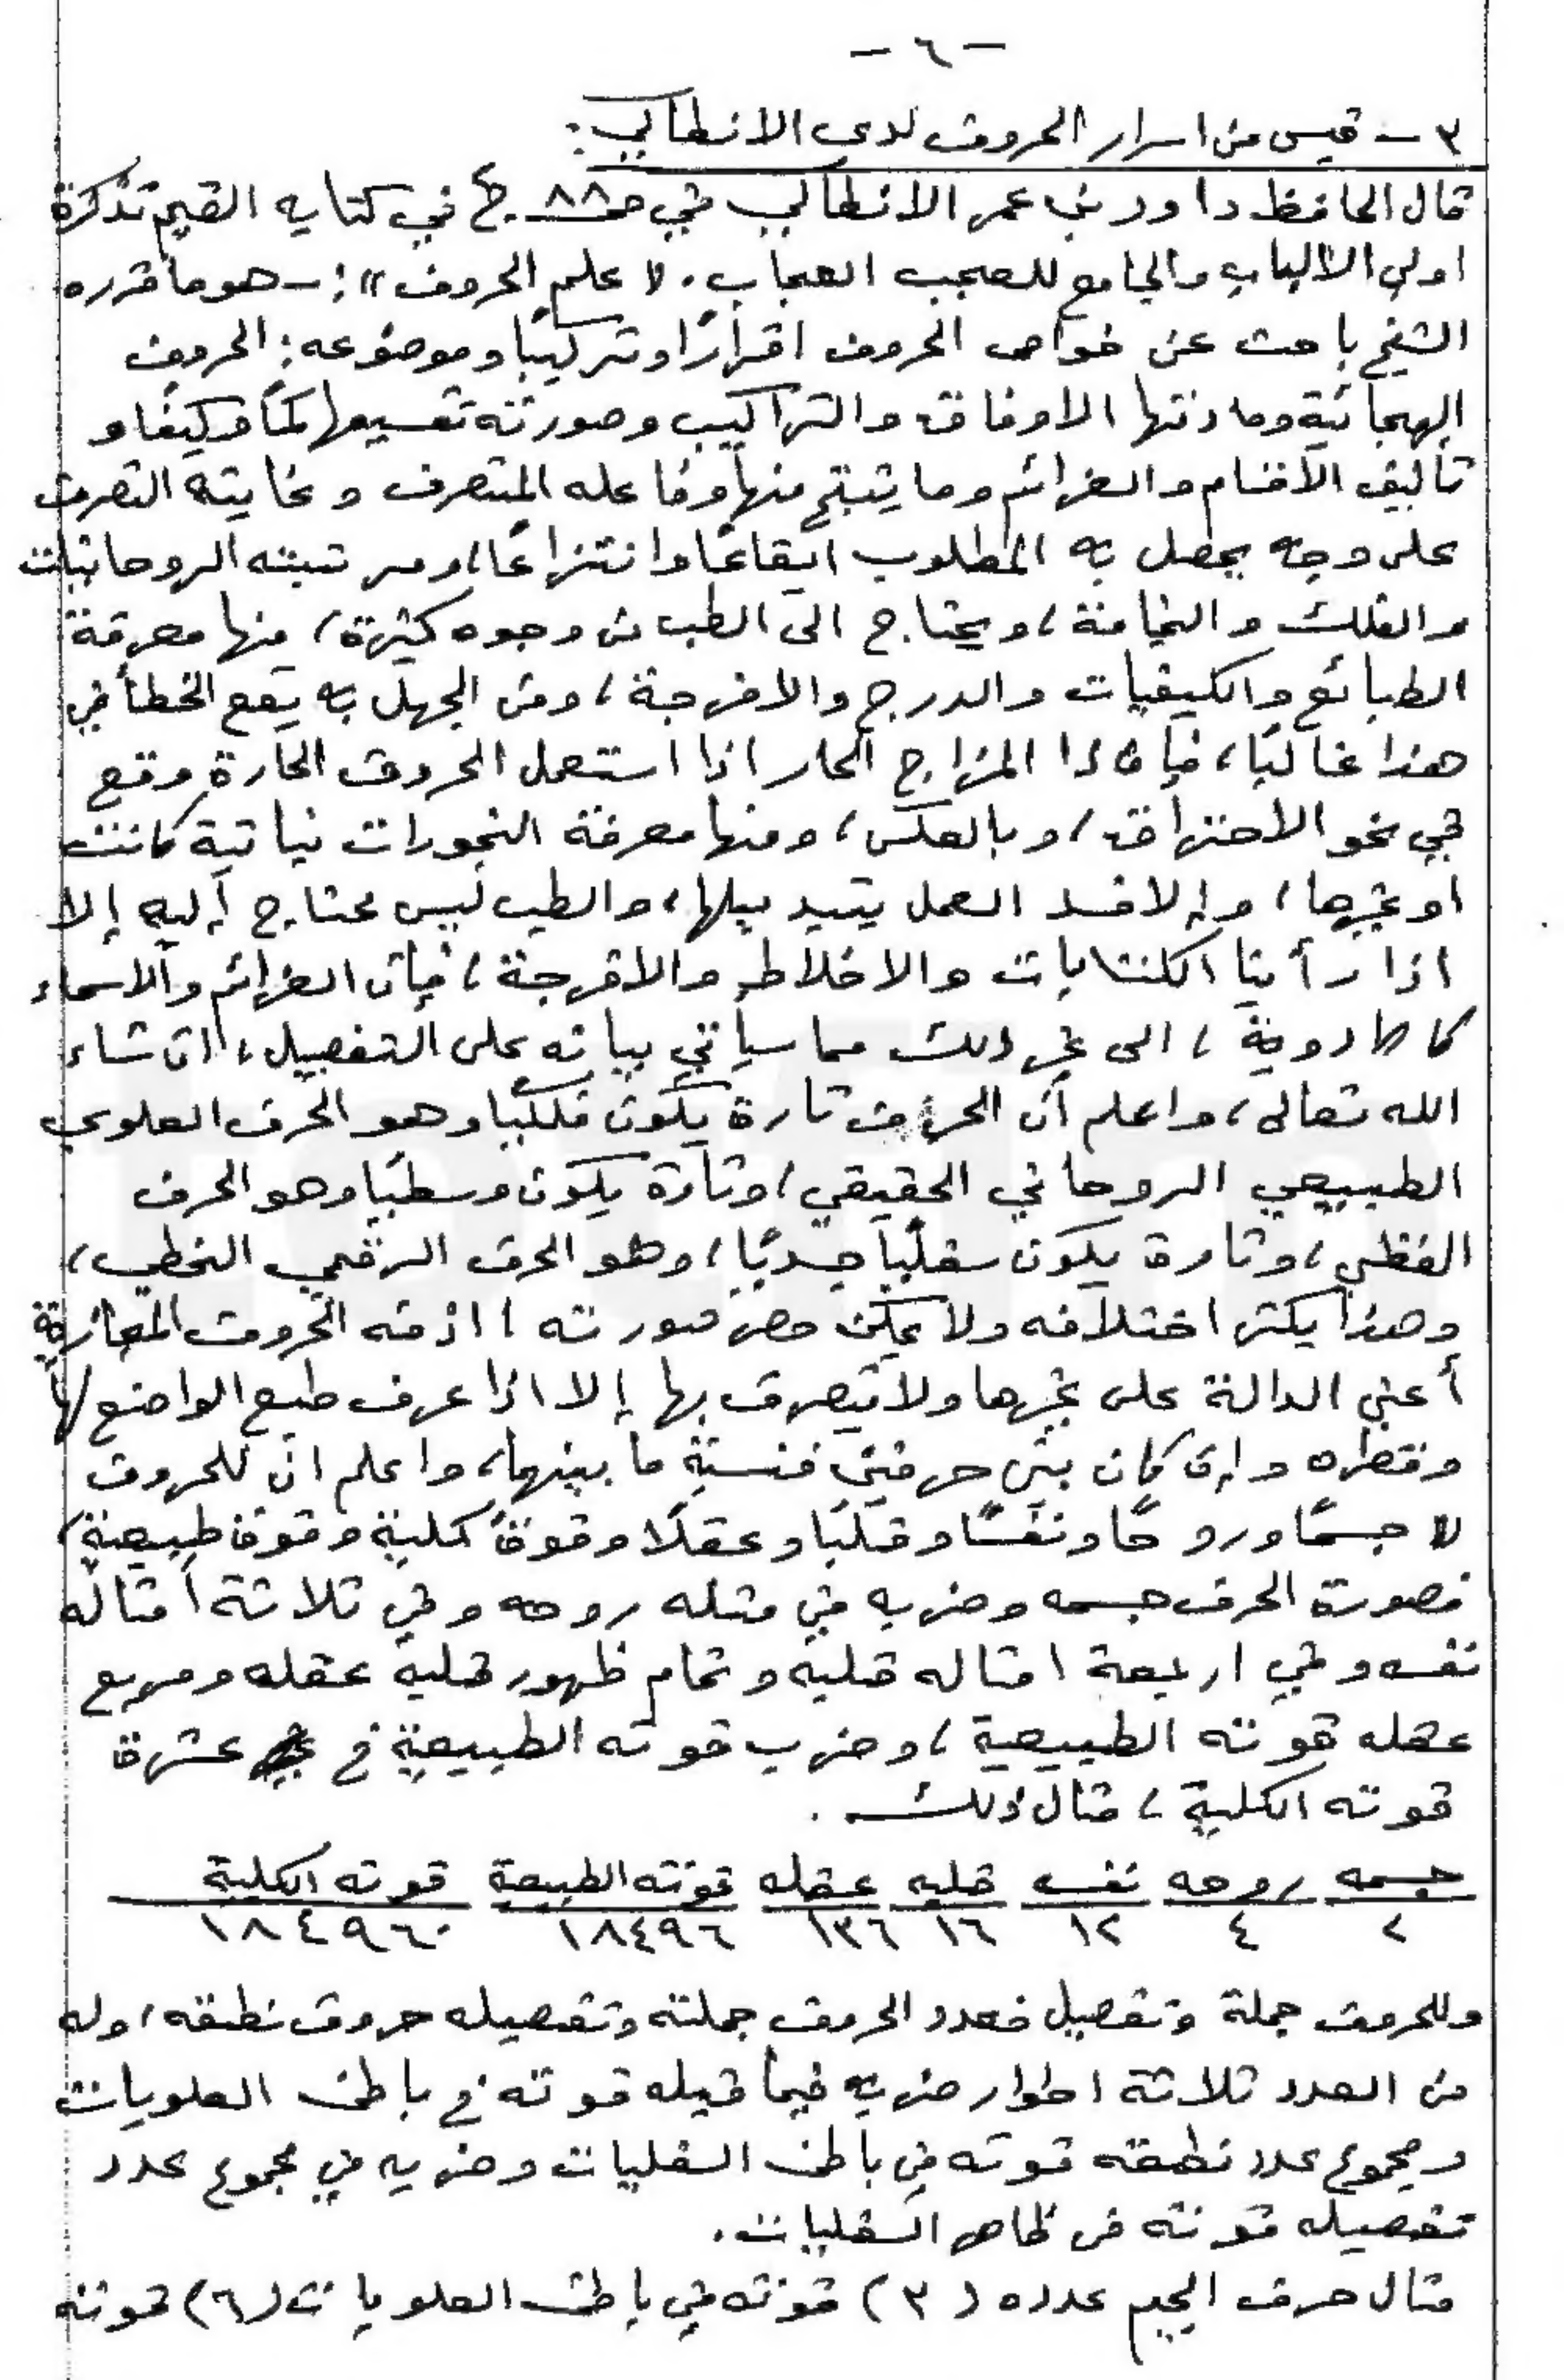 - ٦ -
٣ - قبس من اسرار الحروف لدى الانطاكي :
قال الحافظ داود بن عمر الانطاكي في ص ٨٨ ج٢ في كتابه القيم تذكرة
اولي الألباب والجامع للعجب العجاب. « علم الحروف » :- هو ما قرره
الشيخ باحث عن خواص الحروف افرادًا وتركيبًا وموضوعه : الحروف
الهجائية ومادتها الاوفاق والتراكيب وصورته تقسيمها كمًا وكيفًا و
تأليف الأقسام والعزائم وما ينتج منها وفاعله المتصرف وغايته التصرف
على وجه يحصل به المطلوب ايقاعًا وانتزاعًا، ومرتبته الروحانيات
والفلك والنجامة، ويحتاج الى الطب من وجوه كثيرة، منها معرفة
الطبائع والكيفيات والدرج والامزجة، ومن الجهل به يقع الخطأ في
هذا غالبًا، فإن ذا المزاج الحار اذا استعمل الحروف الحارة وقع
في نحو الاحتراق، وبالعكس، ومنها معرفة البخورات نباتية كانت
او غيرها، وإلا فسد العمل بتبديلها، والطب ليس محتاج إليه إلا
اذا رأينا الكتابات والاخلاط والامزجة، فإن العزائم والاسماء
كالادوية، الى غير ذلك مما سيأتي بيانه على التفصيل، ان شاء
الله تعالى، واعلم أن الحروف تارة يكون فلكيًا وهو الحرف العلوي
الطبيعي الروحاني الحقيقي، وتارة يكون وسطيًا وهو الحرف
اللفظي، وتارة يكون سفليًا جسديًا، وهو الحرف الرقمي الخطي،
وهذا يكثر اختلافه ولا يمكن حصر صورته، اذ منه الحروف المجازية
أعني الدالة على غيرها ولا يتصرف بها إلا اذا عرف طبع الواضع لها
وقطره وإن كان بين حرفين فنسبة ما بينهما، واعلم ان للحروف
« جسمًا وروحًا ونفسًا وقلبًا وعقلًا وقوة كلية وقوة طبيعية،
فصورة الحرف جسمه وضربه في مثله روحه وفي ثلاثة أمثاله
نفسه وفي اربعة امثاله قلبه وتمام ظهور قلبه عقله ومربع
عقله قوته الطبيعية، وضرب قوته الطبيعية في عشرة
قوته الكلية، مثال ذلك .
جسمه روحه نفسه قلبه عقله قوته الطبيعة قوته الكلية
٢ ٤ ١٢ ١٦ ١٣٦ ١٨٤٩٦ ١٨٤٩٦٠
وللحروف جملة وتفصيل فعدد الحروف جملته وتفصيله حروف نطقه، وله
من العدد ثلاثة اطوار ضربه فيما قبله قوته في باطن العلويات
ومجموع عدد نطقه قوته في باطن السفليات وضربه في مجموع عدد
تفصيله قوته في ظاهر السفليات.
مثال حرف الجيم عدده (٣) قوته في باطن العلويات (٦) قوته